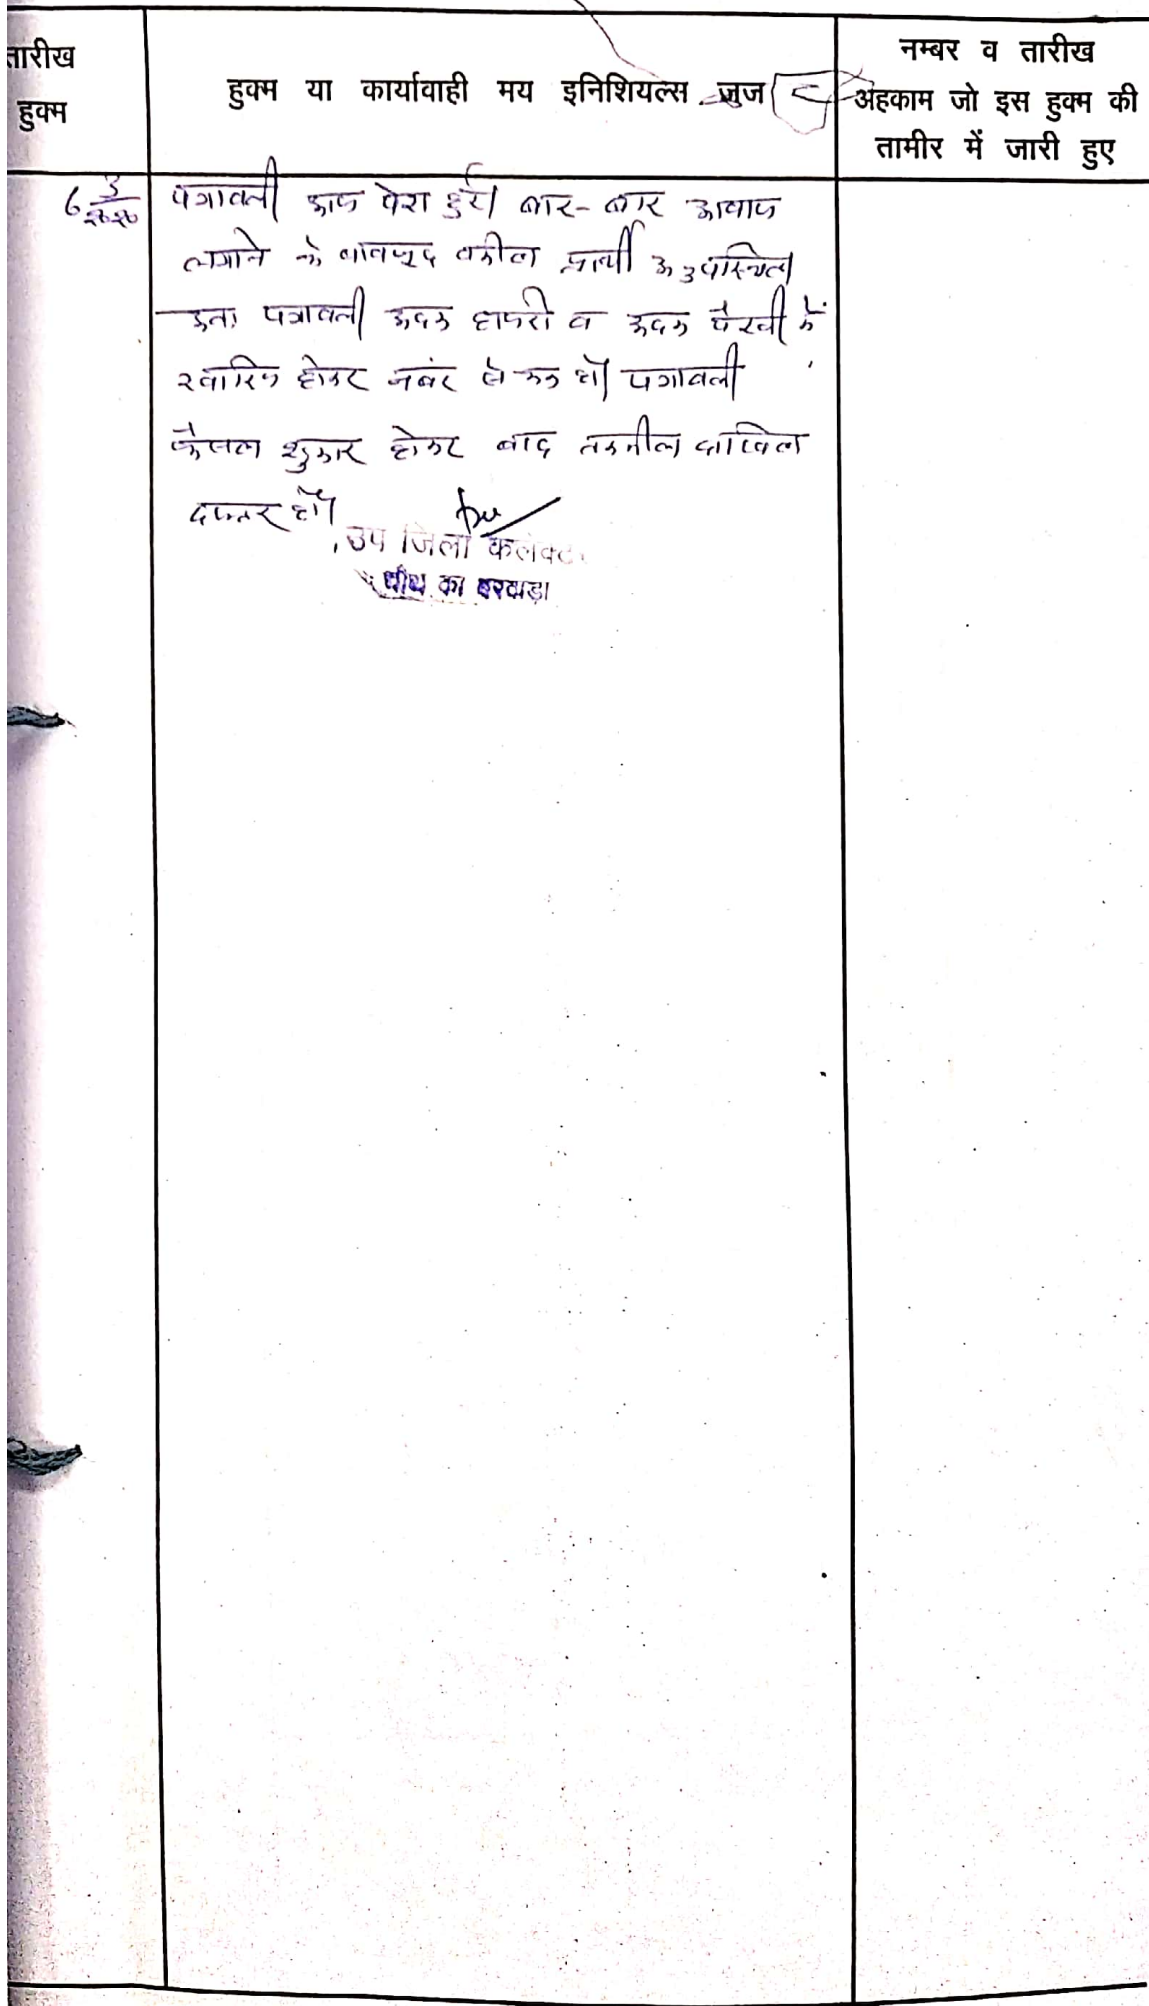 तारीख
हुक्म
हुक्म या कार्यावाही मय इनिशियल्स जुज
नम्बर व तारीख
अहकाम जो इस हुक्म की
तामीर में जारी हुए
6 3/2020
पत्रावली आज पेश हुई। बार-बार आवाज
लगाने के बावजूद वकील प्रार्थी अनुपस्थित
अतः पत्रावली अदम हाजरी व अदम पैरवी में
खारिज होकर नंबर से कम हो। पत्रावली
फैसल शुमार होकर बाद तकमील दाखिल
दफ्तर हो।
उप जिला कलेक्ट
चौथ का बरवाड़ा